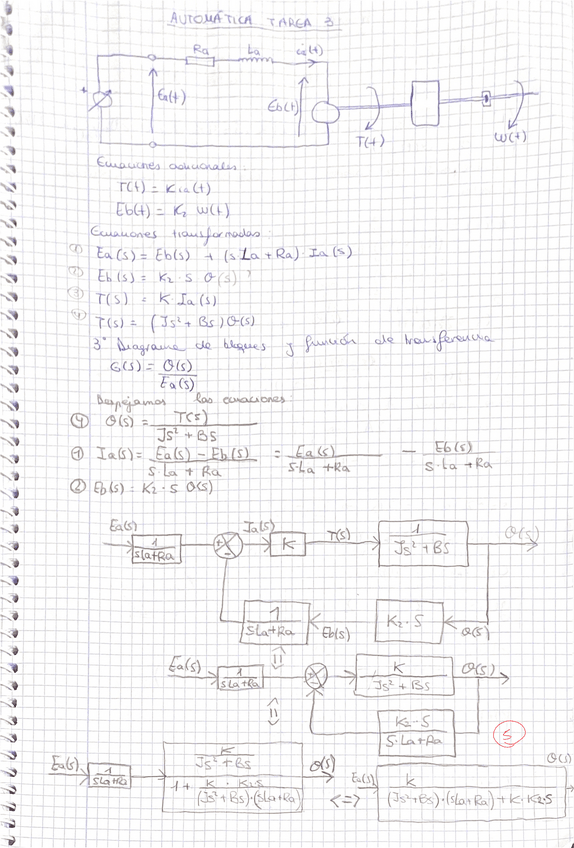 AUTOMÁTICA TAREA 3
Ra La ia(t)
Ea(t) Eb(t) T(t) W(t)
Ecuaciones adicionales:
T(t) = K ia(t)
Eb(t) = K2 W(t)
Ecuaciones transformadas:
① Ea(s) = Eb(s) + (s La + Ra) · Ia(s)
② Eb(s) = K2 · s θ(s)
③ T(s) = K · Ia(s)
④ T(s) = (Js² + Bs) θ(s)
3° Diagrama de bloques y función de transferencia
G(s) = θ(s) / Ea(s)
Despejamos las ecuaciones:
④ θ(s) = T(s) / Js² + Bs
① Ia(s) = Ea(s) - Eb(s) / s·La + Ra = Ea(s) / s·La + Ra - Eb(s) / s·La + Ra
② Eb(s) = K2 · s θ(s)
Ea(s) 1 / sLa+Ra + - Ia(s) K T(s) 1 / Js² + Bs θ(s)
1 / sLa+Ra Eb(s) K2 · s θ(s)
Ea(s) 1 / sLa+Ra + - K / Js² + Bs θ(s)
K2·s / s·La+Ra
5
Ea(s) 1 / sLa+Ra K / Js² + Bs / 1 + K · K2s / (Js² + Bs)·(sLa+Ra) θ(s) <=> Ea(s) K / (Js² + Bs)·(sLa+Ra) + K·K2·s θ(s)